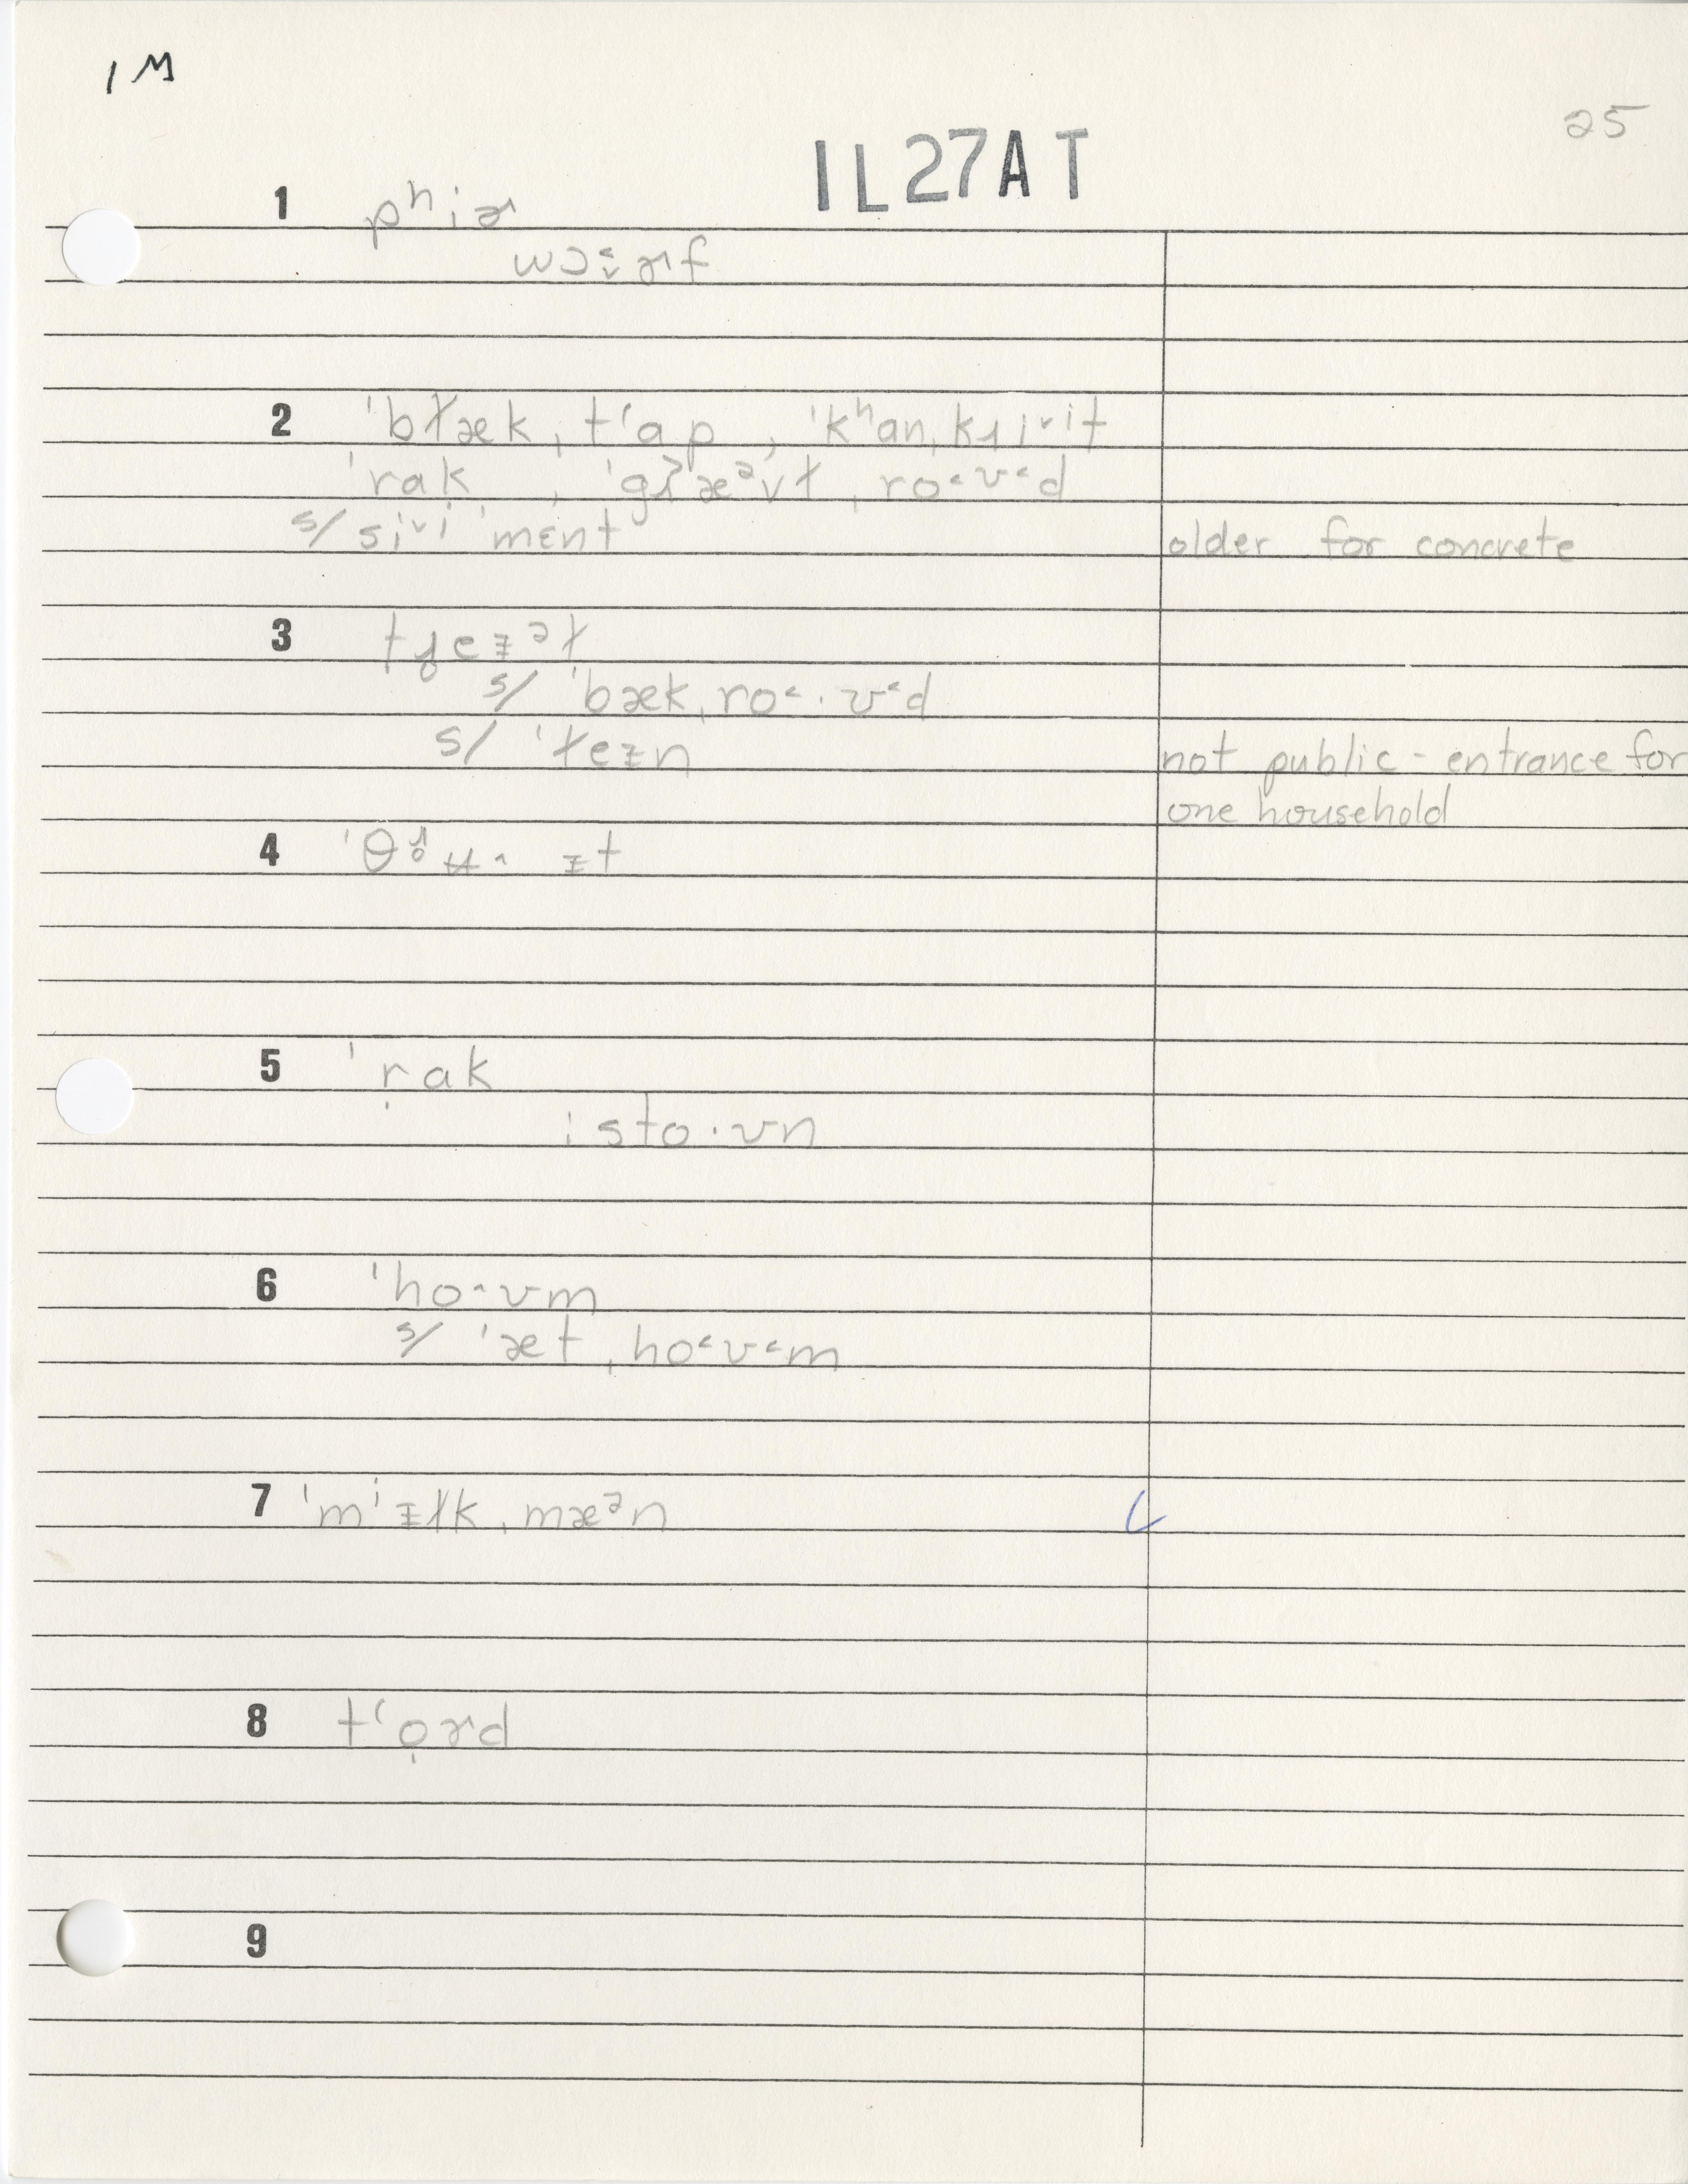 1 M
25
IL27AT
1 pʰiɚ
wɔ˂ɚf
2 ˈbɫæk ˌtʻap , ˈkʰan ˌkɹiᵛit
ˈrak , ˈgɹæᵊvɫ ˌro˂ʊ˂d
s/ siᵛi ˈmɛnt older for concrete
3
s/ ˈbæk ˌro˂·ʊ˂d
s/ ˈɫeɪn not public - entrance for
one household
4
5 ˈrak
ˌsto·ʊn
6 ˈho^ʊm
s/ ˈæt ˌho˂ʊ˂m
7 ˈmɪɫk ˌmæᵊn
8 tʻọɚd
9